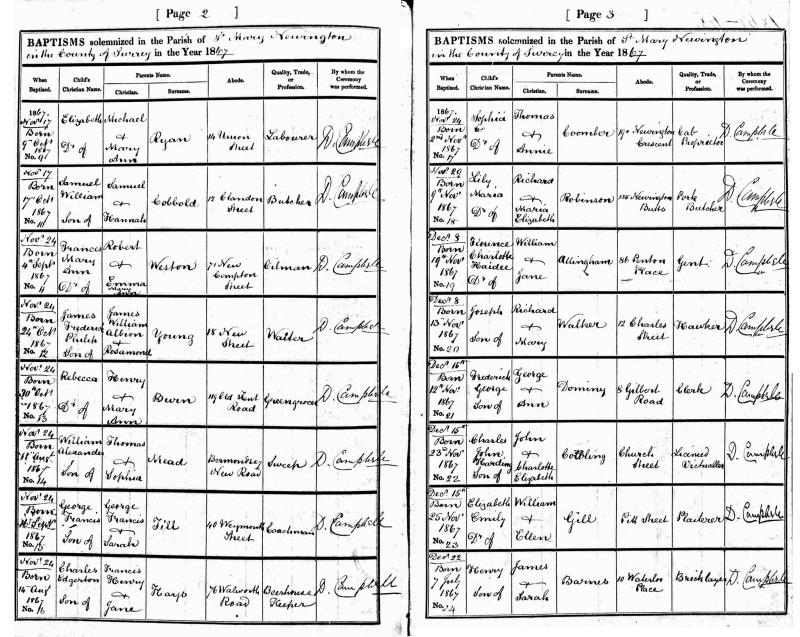 [ Page 2 ]
BAPTISMS solemnized in the Parish of St Mary Newington
in the County of Surrey in the Year 1867
When Baptised. Child's Christian Name. Parents Name. Christian. Surname. Abode. Quality, Trade, or Profession. By whom the Ceremony was performed.
1867. Novr 17 Born 9th Octr 1867 No. 9 Elizabeth Dr of Michael & Mary Ann Ryan 14 Union Street Labourer D. Camplisle
Novr 17 Born 17 Octr 1867 No. Samuel William Son of Samuel & Hannah Cobbold 12 Clandon Street Butcher D. Camplisle
Novr 24 Born 4th Septr 1867 No. 11 Frances Mary Ann Dr of Robert & Emma Mary Ann Weston 71 New Compton Street Oilman D. Camplisle
Novr 24 Born 24 Octr 1867 No. 12 James Frederic Philip Son of James William Albion & Rosamond Young 18 New Street Waiter D. Camplisle
Novr 24 Born 30th Octr 1867 No. 13 Rebecca Dr of Henry & Mary Ann Burn Old Kent Road Greengrocer D. Camplisle
Novr 24 Born 11 Augt 1867 No. 14 William Alexander Son of Thomas & Sophia Mead Bermondsey New Road Sweep D. Camplisle
Novr 24 Born Septr 1867 No. 15 George Francis Son of George Francis & Sarah Till 40 Weymouth Street Coachman D. Camplisle
Novr 24 Born 14 Augt 1867 No. 16 Charles Edgerton Son of Francis Henry & Jane Hays 76 Walworth Road Beerhouse Keeper D. Camplisle
[ Page 3 ]
BAPTISMS solemnized in the Parish of St Mary Newington
in the County of Surrey in the Year 1867
When Baptised. Child's Christian Name. Parents Name. Christian. Surname. Abode. Quality, Trade, or Profession. By whom the Ceremony was performed.
1867. Novr 24 Born 2nd Novr 1867 No. 17 Sophia Dr of Thomas & Annie Coomber Newington Crescent Cab Proprietor D. Camplisle
Novr 29 Born 9th Novr 1867 No. 18 Lily Maria Dr of Richard & Maria Elizabeth Robinson 128 Newington Butts Pork Butcher D. Camplisle
Decr 8 Born 19th Novr 1867 No. 19 Florence Charlotte Haidee Dr of William & Jane Allingham 86 Penton Place Gent. D. Camplisle
Decr 8 Born 13th Novr 1867 No. 20 Joseph Son of Richard & Mary Walker 12 Charles Street Hawker D. Camplisle
Decr 15th Born 12th Novr 1867 No. 21 Frederick George Son of George & Ann Dominy 8 Gilbert Road Clerk D. Camplisle
Decr 15th Born 23rd Novr 1867 No. 22 Charles John Harding Son of John & Charlotte Elizabeth Church Street Licensed Victualler D. Camplisle
Decr 15th Born 25 Novr 1867 No. 23 Elizabeth Emily Dr of William & Ellen Gill Pitt Street Plaiterer D. Camplisle
Decr 22 Born 7 July 1867 No. 24 Henry Son of James & Sarah Barnes 10 Waterloo Place Bricklayer D. Camplisle